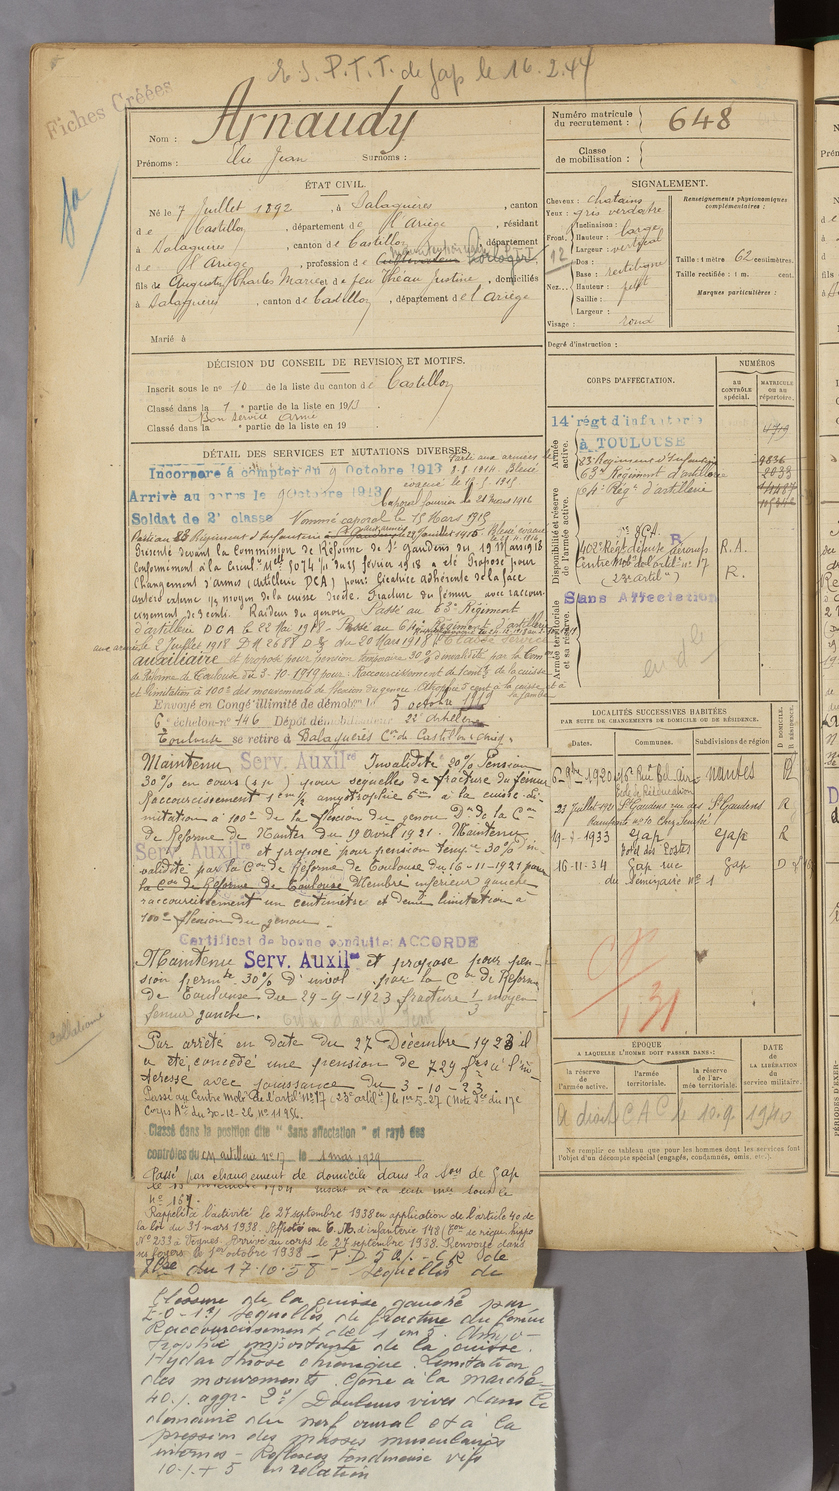 P.T.T. de Gap le 16.2.44
Fiches Créées
Nom : Arnaudy
Prénoms : Elie Jean Surnoms :
Numéro matricule du recrutement : 648
Classe de mobilisation :
ÉTAT CIVIL.
Né le 7 Juillet 1892, à Balaguères, canton
de Castillon, département de l'Ariège, résidant
à Balaguères, canton de Castillon, département
de l'Ariège, profession de horloger P.T.T.
fils de Auguste Charles Marie et de feu Justine, domiciliés
à Balaguères, canton de Castillon, département de l'Ariège
Marié à
SIGNALEMENT.
Cheveux : chatains
Yeux : gris verdatre
Front. Inclinaison :
Hauteur : large
Largeur : vertical
Nez... Dos :
Base : rectiligne
Hauteur : petit
Saillie :
Largeur :
Visage : rond
12
Renseignements physionomiques complémentaires :
Taille : 1 mètre 62 centimètres.
Taille rectifiée : 1 m. cent.
Marques particulières :
Degré d'instruction :
DÉCISION DU CONSEIL DE REVISION ET MOTIFS.
Inscrit sous le n° 10 de la liste du canton de Castillon
Classé dans la 1e partie de la liste en 1913.
Bon service armé
Classé dans la e partie de la liste en 19
DÉTAIL DES SERVICES ET MUTATIONS DIVERSES.
Incorporé à compter du 9 Octobre 1913
Parti aux armées le
8.8.1914. Blessé
évacué le
Arrivé au corps le 9 Octobre 1913
Caporal fourrier le 21 Mars 1916
Soldat de 2e classe Nommé caporal le 15 Mars 1915
Passé au 83 Régiment d'Infanterie le 22 Juillet 1915 Blessé évacué
Présenté devant la Commission de Réforme de St Gaudens du 19 Mars 1918
Conformément à la Circul. Mlle 5074 du 15 février 1918 a été Proposé pour
Changement d'arme (Artillerie DCA) pour : Cicatrice adhérente de la face
antéro externe 1/3 moyen de la cuisse droite. Fracture du fémur avec raccour-
cissement de 3 centi. Raideur du genou. Passé au 63e Régiment
d'artillerie DCA le 22 Mai 1918 - Passé au 64e Régiment d'artillerie
aux armées le 2 Juillet 1918 Classé Service
auxiliaire et proposé pour pension temporaire 30% d'invalidité par la Com on
de Réforme de Toulouse du 3-10-1919 pour : Raccourcissement de 1 centi de la cuisse
et limitation à 100° des mouvements de flexion du genou. Atrophie 5 cent à la cuisse
Envoyé en Congé illimité de démob on le 5 octobre 1919
6e échelon - n° 146. Dépôt démobilisateur 22e Artillerie
Toulouse se retire à Balaguères Con de Castillon (Ariège)
Maintenu Serv. Auxil re Invalidité 20% Pension
30% en cours (s.p.) pour séquelles de fracture du fémur
Raccourcissement 1 cm 1/2 amyotrophie 6 cm à la cuisse. Li-
mitation à 100° de la flexion du genou Don de la Con
de Réforme de Nantes du 19 Avril 1921. Maintenu
Serv. Auxil re et proposé pour pension temp re 30% d'in-
validité par la Con de Réforme de Toulouse du 16-11-1921 pour
la Con de Réforme de Toulouse Membre inférieur gauche
raccourcissement un centimètre et demi limitation à
100° flexion du genou.
Certificat de bonne conduite : ACCORDÉ
Maintenu Serv. Auxil re et proposé pour pen-
sion perm te 30% d'inval. par la Con de Réforme
de Toulouse du 29-9-1923 fracture 1/3 moyen
fémur gauche.
Par arrêté en date du 27 Décembre 1923 il
a été concédé une pension de 729 frs à l'in-
téressé avec jouissance du 3-10-23.
Passé au Centre mob. de l'artil. n° 17 (23e artil ie) le 1er-5-27 (Note du 17e
Corps Ar. du 30-12-26 n° 11956.
Classé dans la position dite " Sans affectation " et rayé des
contrôles du cm artillerie n° 17 le 1 mai 1929
Passé par changement de domicile dans la Son de Gap
n° 157.
Rappelé à l'activité le 27 septembre 1938 en application de l'article 40 de
la loi du 31 mars 1928. Affecté au C. M. d'infanterie 148
N° 233 à Veynes. Arrivé au corps le 27 septembre 1938. Renvoyé dans
ses foyers le 1er octobre 1938 - P. D. 5 %. C.R. de
du 17.10.58 - Séquelles de
blessure de la cuisse gauche par
E.O - 1°) Séquelles de fracture du fémur
Raccourcissement de 1 cm 5. Amyo-
trophie importante de la cuisse.
Hydarthrose chronique. Limitation
des mouvements. Gêne à la marche
40 % aggr - 2°/ Douleurs vives dans le
domaine du nerf crural et à la
pression des masses musculaires
internes - Réflexes tendineux vifs
10 % + 5 en relation
CORPS D'AFFECTATION.
NUMÉROS
AU CONTRÔLE spécial.
MATRICULE OU AU répertoire.
Armée active.
14e régt d'infanterie
à TOULOUSE
83e Régiment d'Infanterie
63e Régiment d'artillerie
64e Rég t d'artillerie
Disponibilité et réserve de l'armée active.
402e Régt député aérons R.A.
Centre Mob. de l'artil. n° 17 R.
(23e artil ie)
Sans Affectation
Armée territoriale et sa réserve.
LOCALITÉS SUCCESSIVES HABITÉES
PAR SUITE DE CHANGEMENTS DE DOMICILE OU DE RÉSIDENCE.
Dates. Communes. Subdivisions de région D. DOMICILE. R. RÉSIDENCE.
6 9bre 1920 16 Rue Bel Air Nantes R
Ecole de Rééducation
23 juillet 1921 St Gaudens rue des St Gaudens R
Remparts n° 10
19-2-1933 Gap Gap R
Hôtel des Postes
16-11-34 Gap rue Gap D
du Séminaire n° 1
ÉPOQUE
A LAQUELLE L'HOMME DOIT PASSER DANS :
DATE DE LA LIBÉRATION du service militaire.
la réserve de l'armée active.
l'armée territoriale.
la réserve de l'armée territoriale.
A droit CAC le 10.9.1940
Ne remplir ce tableau que pour les hommes dont les services font
l'objet d'un décompte spécial (engagés, condamnés, omis, etc.).